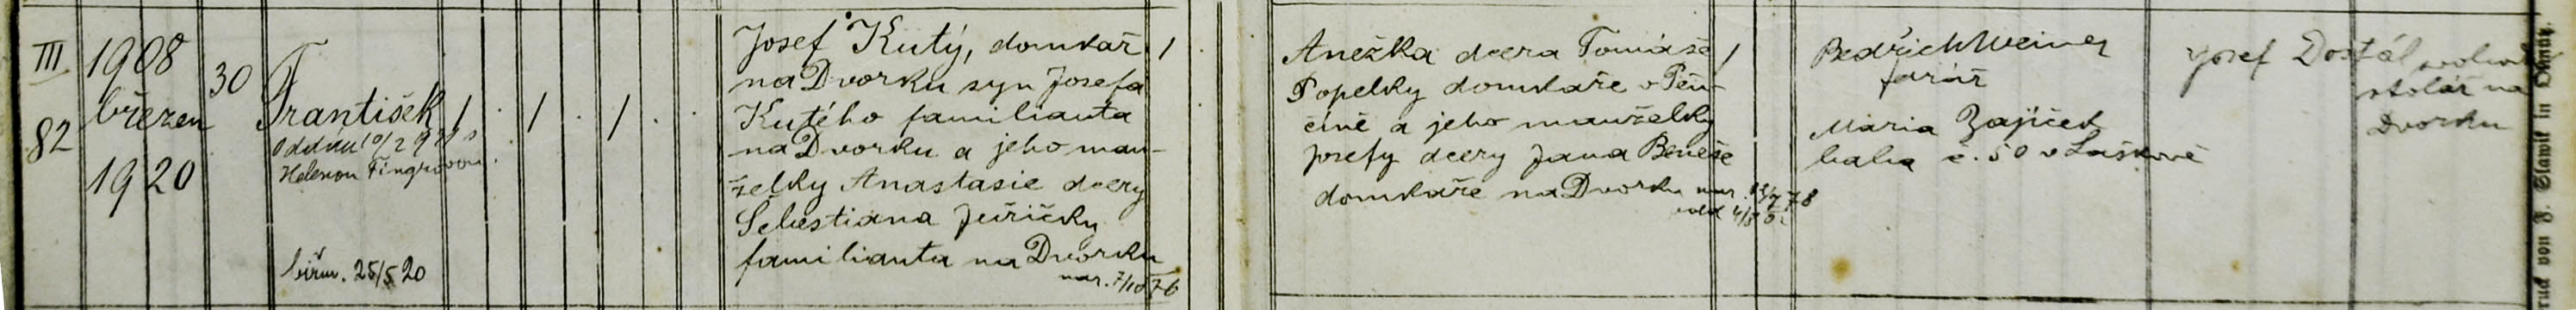 III
82
1908
březen
1920
30
František
oddán 10/2
Helenou Fingrovou
biřm. 25/5 20
Josef Kutý, domkař
na Dvorku syn Josefa
Kutého familianta
na Dvorku a jeho man-
želky Anastasie dcery
Šebestiana Jeřičky
familianta na Dvorku
nar. 7/10 76
Anežka dcera Tomáše
Popelky domkaře v Pěn-
číně a jeho manželky
Josefy dcery Jana Beneše
domkaře na Dvorku nar. 78
Bedřich Weiner
farář
Maria Zajíček
baba č. 50 v Laškově
Josef Dostál
stolář na
Dvorku
Druck von F. Slawik in